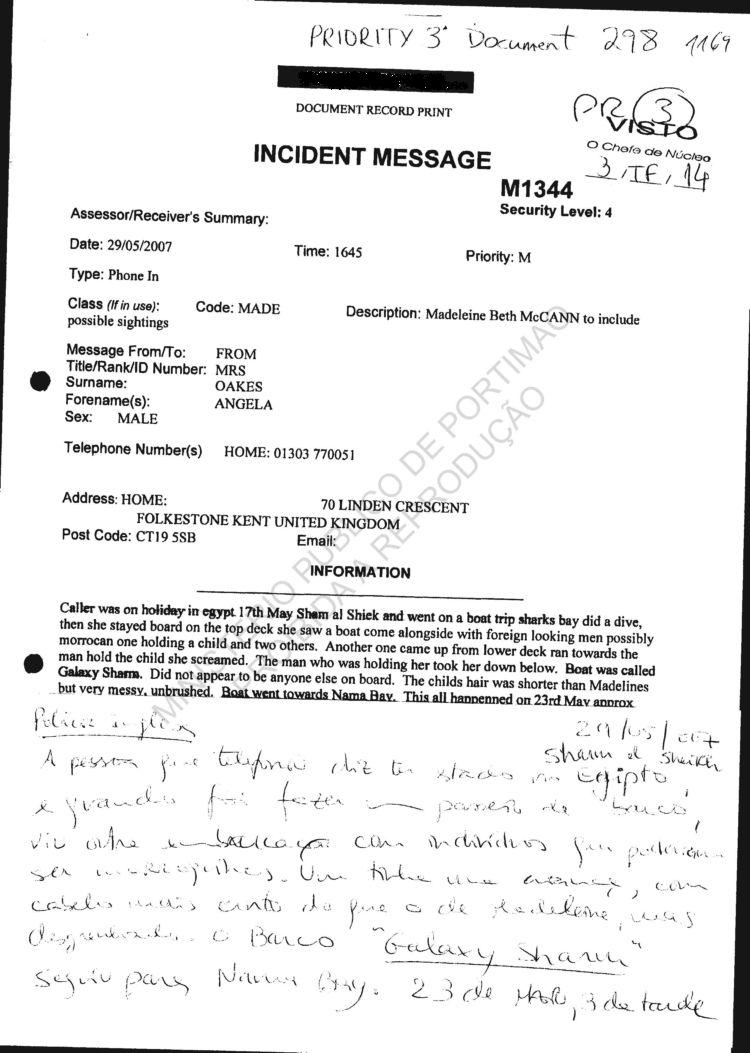 PRIORITY 3ª Document 298 1169
DOCUMENT RECORD PRINT
PR (3)
VISTO
O Chefe de Núcleo
3, IF, 14
INCIDENT MESSAGE
M1344
Security Level: 4
Assessor/Receiver's Summary:
Date: 29/05/2007 Time: 1645 Priority: M
Type: Phone In
Class (If in use): Code: MADE Description: Madeleine Beth McCANN to include
possible sightings
Message From/To: FROM
Title/Rank/ID Number: MRS
Surname: OAKES
Forename(s): ANGELA
Sex: MALE
Telephone Number(s) HOME: 01303 770051
Address: HOME: 70 LINDEN CRESCENT
FOLKESTONE KENT UNITED KINGDOM
Post Code: CT19 5SB Email:
INFORMATION
Caller was on holiday in egypt 17th May Sham al Shiek and went on a boat trip sharks bay did a dive,
then she stayed board on the top deck she saw a boat come alongside with foreign looking men possibly
morrocan one holding a child and two others. Another one came up from lower deck ran towards the
man hold the child she screamed. The man who was holding her took her down below. Boat was called
Galaxy Sharm. Did not appear to be anyone else on board. The childs hair was shorter than Madelines
but very messy, unbrushed. Boat went towards Nama Bay. This all happened on 23rd May approx
MINISTÉRIO PÚBLICO DE PORTIMÃO
PROIBIDA A REPRODUÇÃO
Polícia inglesa 29/05/007
Sharm el Sheikh
A pessoa que telefonou diz ter estado no Egipto,
e quando foi fazer um passeio de barco,
viu outra embarcação com indivíduos que poderiam
ser marroquinos. Um tinha uma criança, com
cabelo mais curto do que o de Madeleine, mas
desgrenhado. O Barco "Galaxy Sharm"
seguiu para Nama Bay. 23 de Maio, 3 da tarde